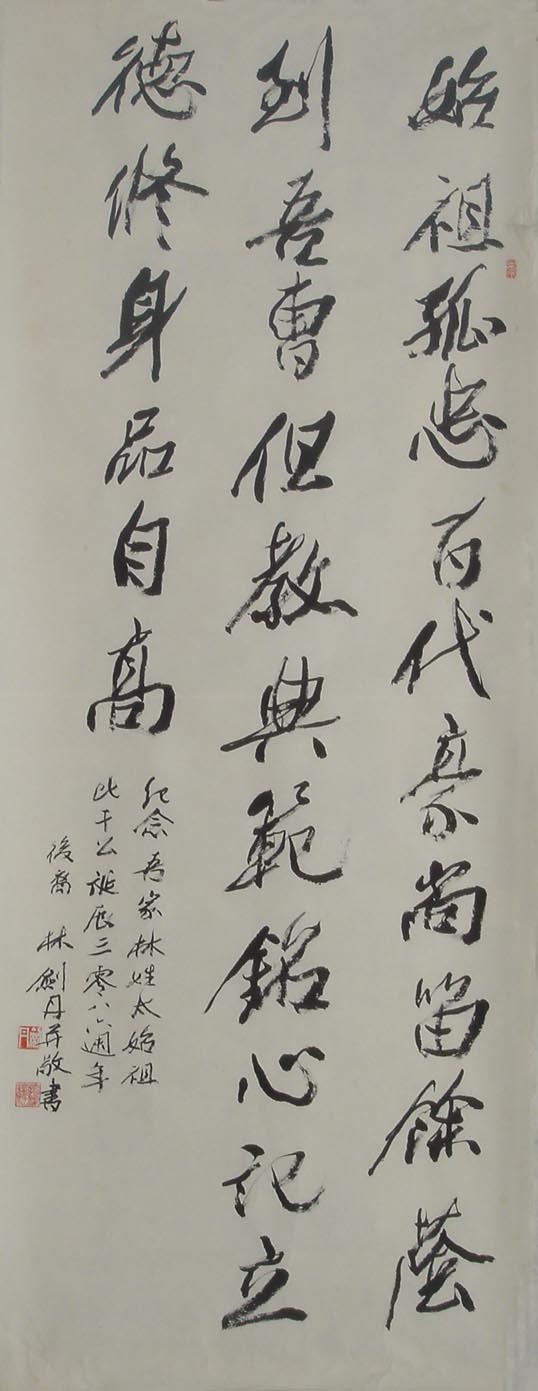 始祖孤忠百代豪尚留餘蔭
到吾曹但教典範銘心記立
德修身品自高
紀念吾家林姓太始祖
比干公誕辰三零八六週年
後裔 林劍丹并敬書